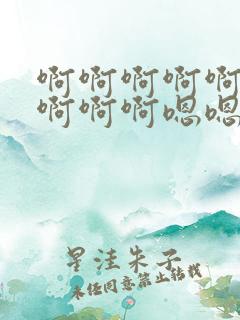 啊啊啊啊啊
啊啊啊嗯嗯
星洼朱子
未经同意禁止转载